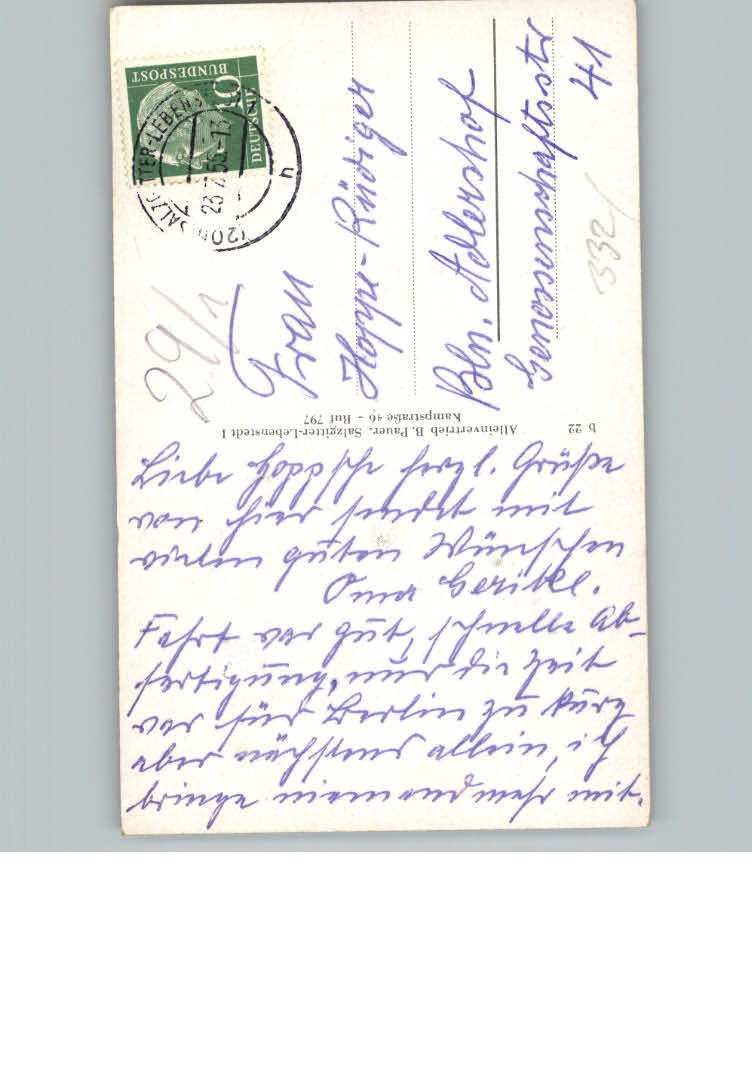 DEUTSCHE
BUNDESPOST
10
SALZGITTER-LEBENST
23.7.55-13
(20
n
29/1
Frau
Hoppe-Rüdiger
Bln. Adlershof
Genossenschaftsstr
41
332/
b 22
Alleinvertrieb B. Pauer, Salzgitter-Lebenstedt I
Kampstraße 46 - Ruf 797
Liebe Hoppsche herzl. Grüße
von hier sendet mit
vielen guten Wünschen
Oma Gericke.
Fahrt war gut, schnelle Ab-
fertigung, nur die Zeit
war für Berlin zu kurz
aber nächstens allein, ich
bringe niemand mehr mit.